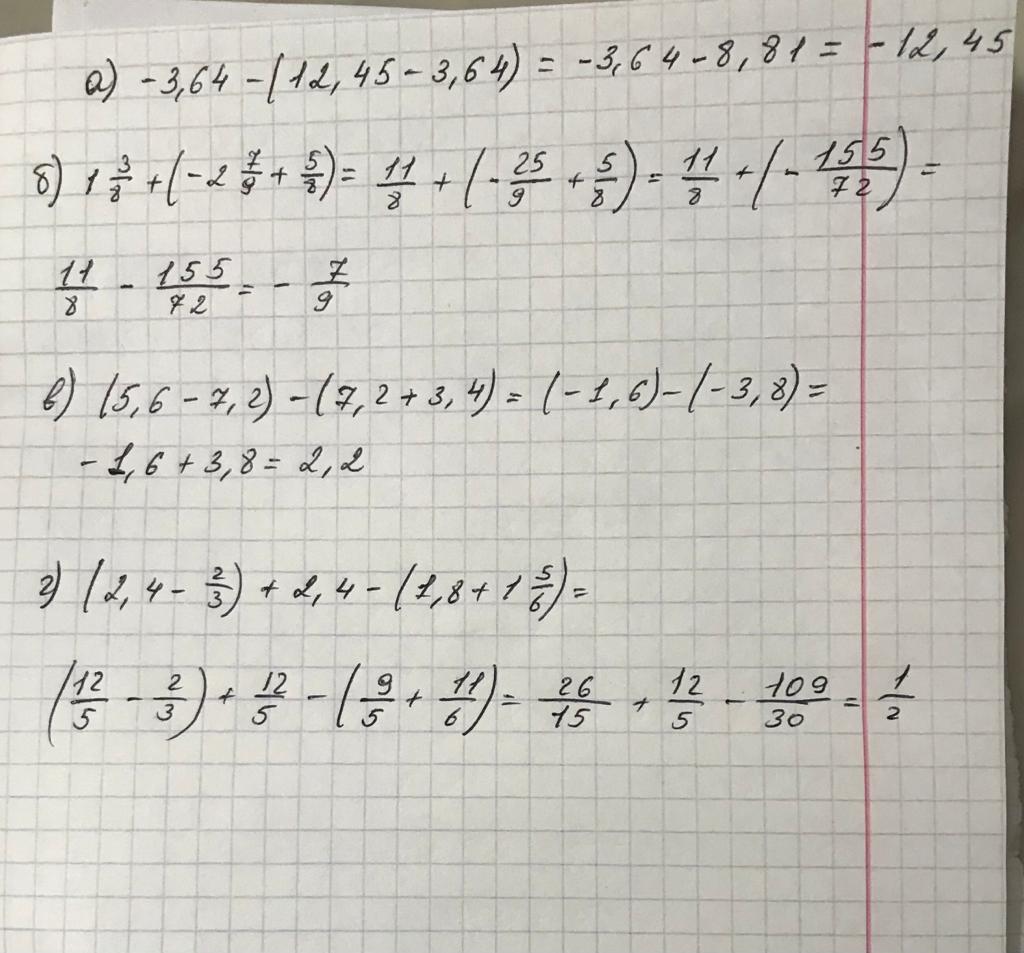 а) -3,64 - (12,45 - 3,64) = -3,64 - 8,81 = -12,45
б) 1 3/8 + (-2 7/9 + 5/8) = 11/8 + (-25/9 + 5/8) = 11/8 + (-155/72) =
11/8 - 155/72 = - 7/9
в) (5,6 - 7,2) - (7,2 + 3,4) = (-1,6) - (-3,8) =
-1,6 + 3,8 = 2,2
г) (2,4 - 2/3) + 2,4 - (1,8 + 1 5/6) =
(12/5 - 2/3) + 12/5 - (9/5 + 11/6) = 26/15 + 12/5 - 109/30 = 1/2